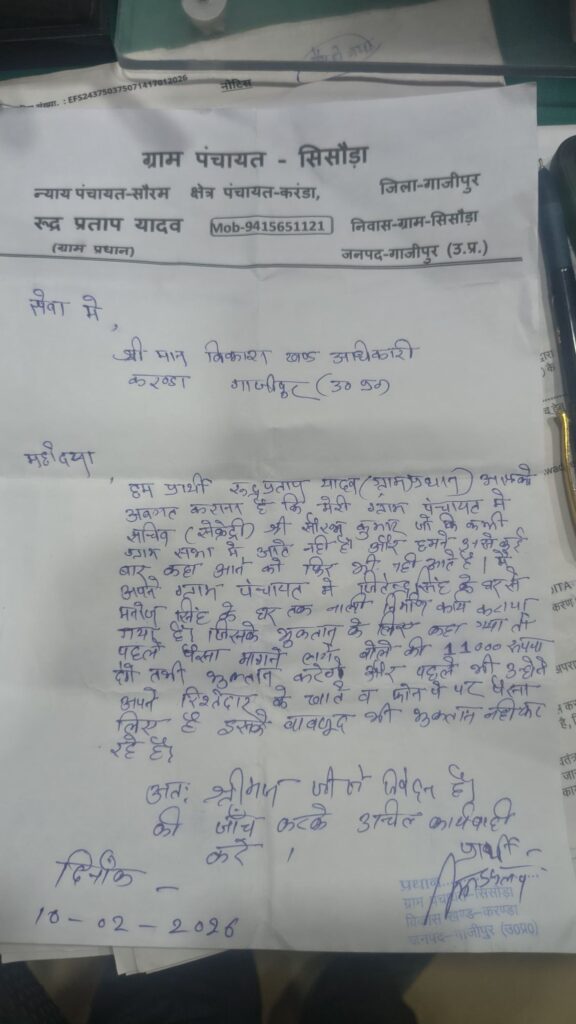 संख्या. : EFS24375037507141701 2026
नोटिस
ग्राम पंचायत - सिसौड़ा
न्याय पंचायत-सौरम क्षेत्र पंचायत-करंडा, जिला-गाजीपुर
रूद्र प्रताप यादव Mob-9415651121 निवास-ग्राम-सिसौड़ा
(ग्राम प्रधान) जनपद-गाजीपुर (उ.प्र.)
सेवा मे,
श्री मान विकाश खण्ड अधिकारी
करण्डा गाजीपुर (उ० प्र०)
महोदया,
हम प्रार्थी रूद्रप्रताप यादव (ग्राम प्रधान) आपको
अवगत कराना है कि मेरी ग्राम पंचायत मे
सचिव (सेकेट्री) श्री सौरभ कुमार जो कि कभी
ग्राम सभा मे आते नही है। और हमने उनसे कई
बार कहा आने को फिर भी नही आते है। मै
अपने ग्राम पंचायत मे जितेन्द्र सिंह के घर से
मनोज सिंह के घर तक नाली निर्माण कार्य कराया
गया है। जिसके भुकतान के लिए कहा गया तो
पहले पैसा मागने लगे बोले की 11000 रूपया
दोगे तभी भुकतान करेगे और पहले भी उन्होने
अपने रिश्तेदार के खाते व फोन पे पर पैसा
लिए है इसके बावजूद भी भुकतान नही कर
रहे है।
अतः श्रीमान जी से निवेदन है।
की जाँच करके उचित कार्यवाही
करे।
प्रार्थी
दिनाँक -
10-02-2026
प्रधान
ग्राम पंचायत-सिसौड़ा
विकास खण्ड-करण्डा
जनपद-गाजीपुर (उ०प्र०)